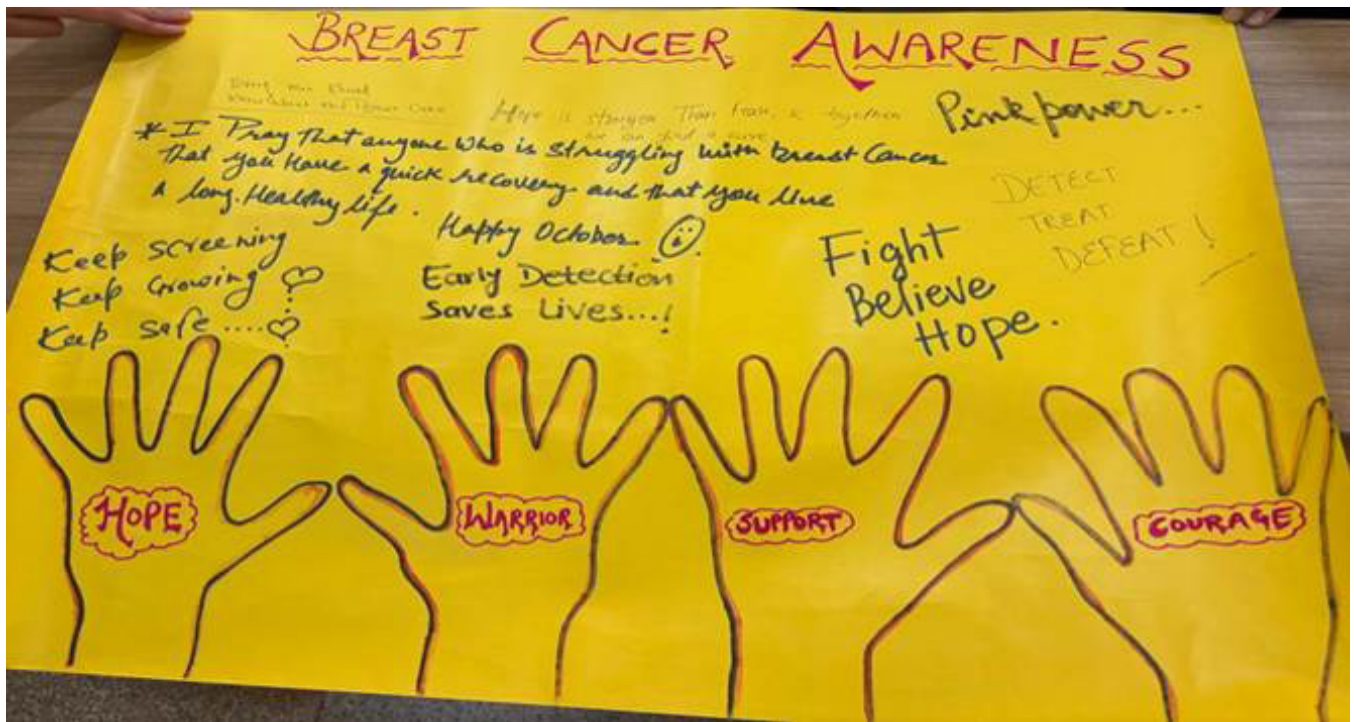 BREAST CANCER AWARENESS
Pink power...
Hope is stronger than fear, & together
we can find a cure
* I Pray that anyone who is struggling with Breast Cancer
that you have a quick recovery and that you live
a long. Healthy life.
DETECT
TREAT
DEFEAT!
Keep screening
Keep Growing
Keep safe....
Happy October
Early Detection
Saves Lives...!
Fight
Believe
Hope.
HOPE
WARRIOR
SUPPORT
COURAGE